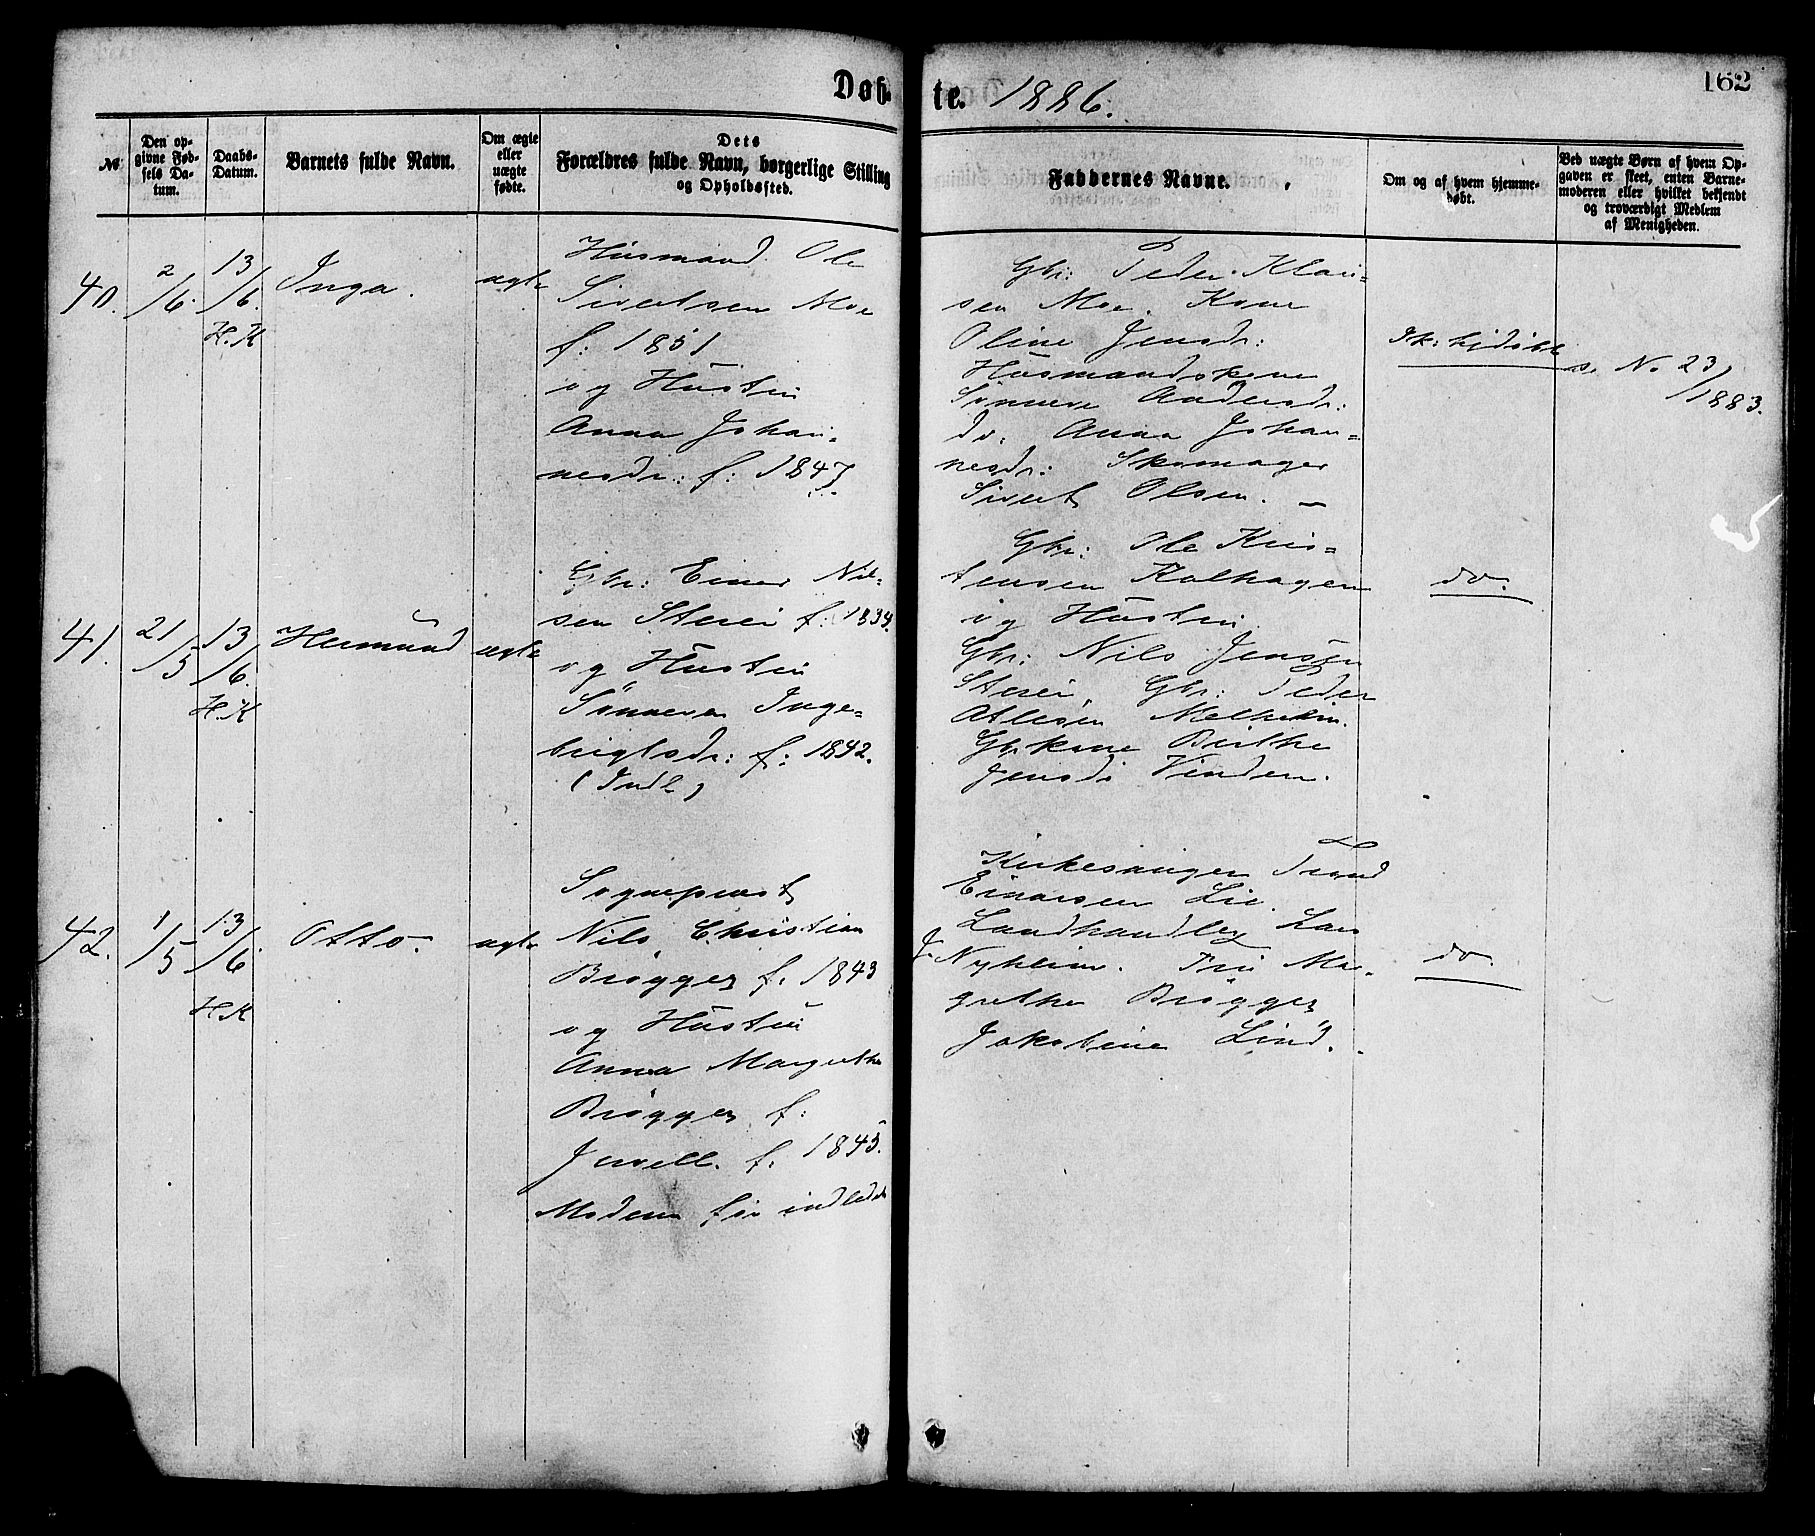 Døb-
te. 1886.
162
№
Den op-
givne Fød-
sels Da-
tum.
Daabs-
Datum.
Barnets fulde Navn.
Om ægte
eller
uægte
fødte.
Dets
Forældres fulde Navn, borgerlige Stilling
og Opholdssted.
Faddernes Navne.
Om og af hvem hjemme-
døbt.
Ved uægte Børn af hvem Op-
gaven er skeet, enten Barne-
moderen eller hvilket bekjendt
og troværdigt Medlem
af Menigheden.
40.
2/6.
13/6.
H.K
Inga.
ægte
Husmand Ole
Sivertsen Moe
f: 1851
og Hustru
Anna Johan-
nesdr: f: 1847.
Gbr: Peder Klau-
sen Moe. Kone
Oline Jensdr:
Husmandskone
Synneve Andersdr:
do: Anna Johan-
nesdr: Skomager
Sivert Olsen. –
Ik: hjdøbt
s. No 23/1883.
41.
21/5
13/6.
H.K
Hermund
ægte
Gbr: Einar Nil-
sen Steiei f: 1834.
og Hustru
Synneva Inge-
brigtsdr: f: 1842.
(Indl)
Gbr: Ole Kris-
tensen Kalhagen
og Hustru
Gbr: Nils Jensen
Steiei. Gbr: Peder
Atlesen Melheim.
Gbrkone Birthe
Jensdr Vinden.
do.
42.
1/5
13/6.
H.K
Otto.
ægte
Sogneprest
Nils Christian
Brøgger f. 1843
og Hustru
Anna Margrethe
Brøgger f:
Jervell. f. 1845.
Moderen før indledet
Kirkesanger Trond
Einarsen Lie.
Landhandler Lars
J. Nyheim. Fru Mar-
grethe Brøgger
Jakobine Lind.
do.